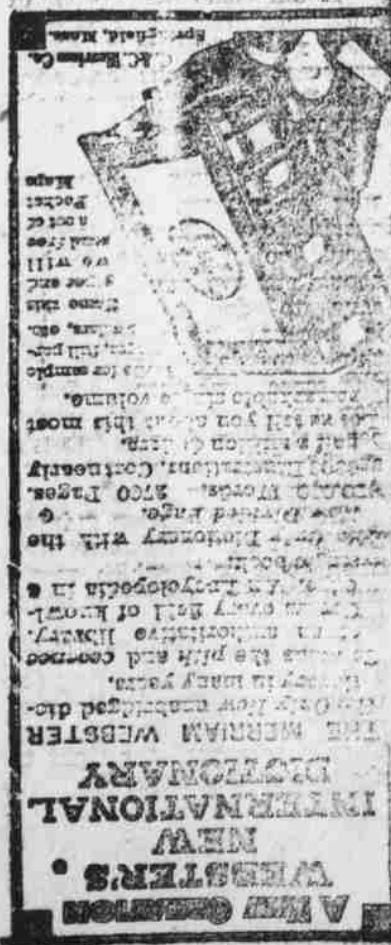 A New Creation
WEBSTER'S
NEW
INTERNATIONAL
DICTIONARY
THE MERRIAM WEBSTER
The Only New unabridged dic-
tionary in many years.
Contains the pith and essence
of an authoritative library.
in every field of knowl-
edge. An Encyclopedia in a
single book.
The Only Dictionary with the
New Divided Page.
400,000 Words. 2700 Pages.
6000 Illustrations. Cost nearly
half a million dollars.
Let us tell you about this most
remarkable single volume.
Write for sample
pages, full par-
ticulars, etc.
Name this
paper and
we will
send free
a set of
Pocket
Maps
G. & C. Merriam Co.
Springfield, Mass.